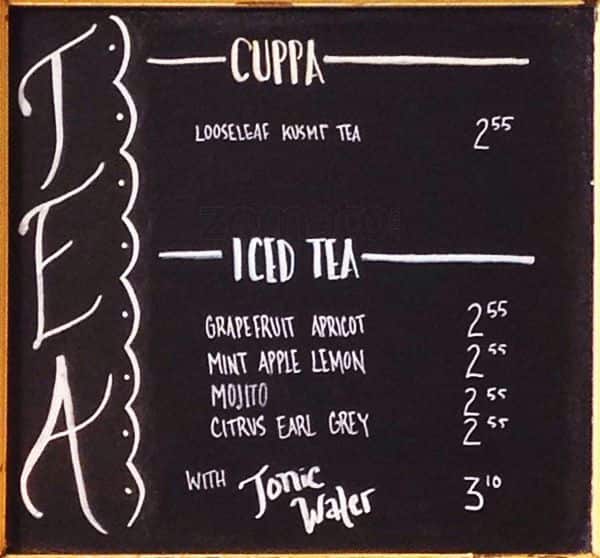 TEA
CUPPA
LOOSELEAF KUSMI TEA 2.55
ICED TEA
GRAPEFRUIT APRICOT 2.55
MINT APPLE LEMON 2.55
MOJITO 2.55
CITRUS EARL GREY 2.55
WITH Tonic Water 3.10
zomato